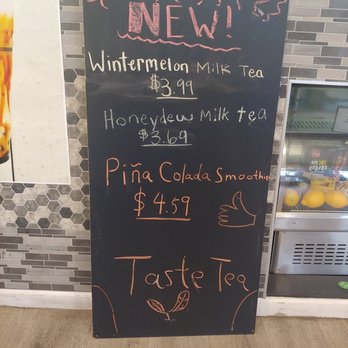 NEW!
Wintermelon Milk Tea
$3.99
Honeydew Milk Tea
$3.69
Piña Colada Smoothie
$4.59
Taste Tea